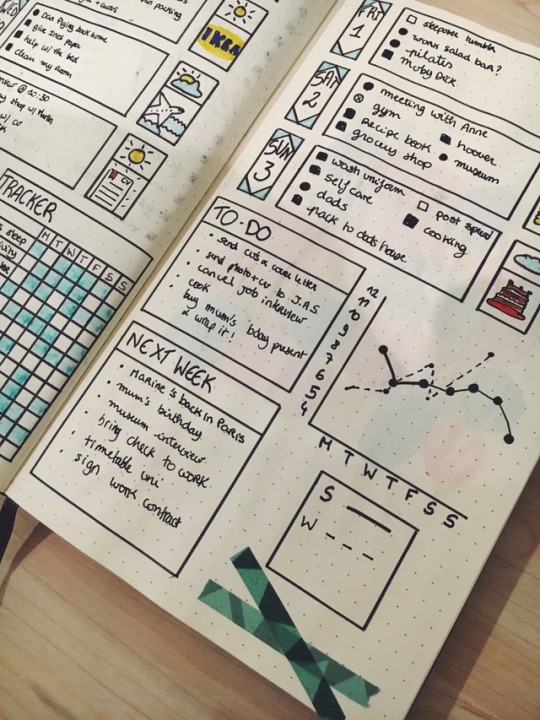 WED
Dan flying back home
give Ines papu
help w/ the bed
clean my room
IKEA
@ 10:30
CV
TRACKER
sleep
M T W T F S S
FRI
1
sleepover tumblr
work salad bar?
pilates
Moby Dick
SAT
2
meeting with Anne
gym
hoover
Recipe book
museum
grocery shop
SUN
3
wash uniform
post spread
self care
cooking
dads
pack to dads house
TO-DO
send cv & cover letter
send photo + cv to J.A.S
cancel job interview
cook
buy mum's bday present
& wrap it!
NEXT WEEK
Marine's back in Paris
mum's birthday
museum interview
bring check to work
timetable uni
sign work contract
12
11
10
9
8
7
6
5
4
M T W T F S S
S
W